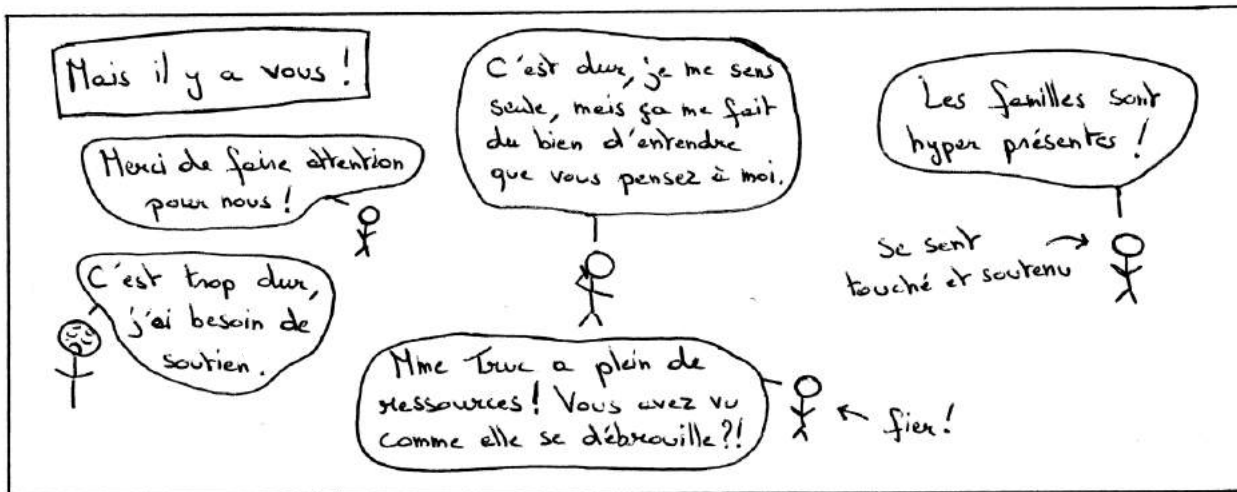 Mais il y a vous !
Merci de faire attention
pour nous !
C'est trop dur,
j'ai besoin de
soutien.
C'est dur, je me sens
seule, mais ça me fait
du bien d'entendre
que vous pensez à moi.
Mme Truc a plein de
ressources ! Vous avez vu
comme elle se débrouille ?!
fier !
Les familles sont
hyper présentes !
se sent
touché et soutenu